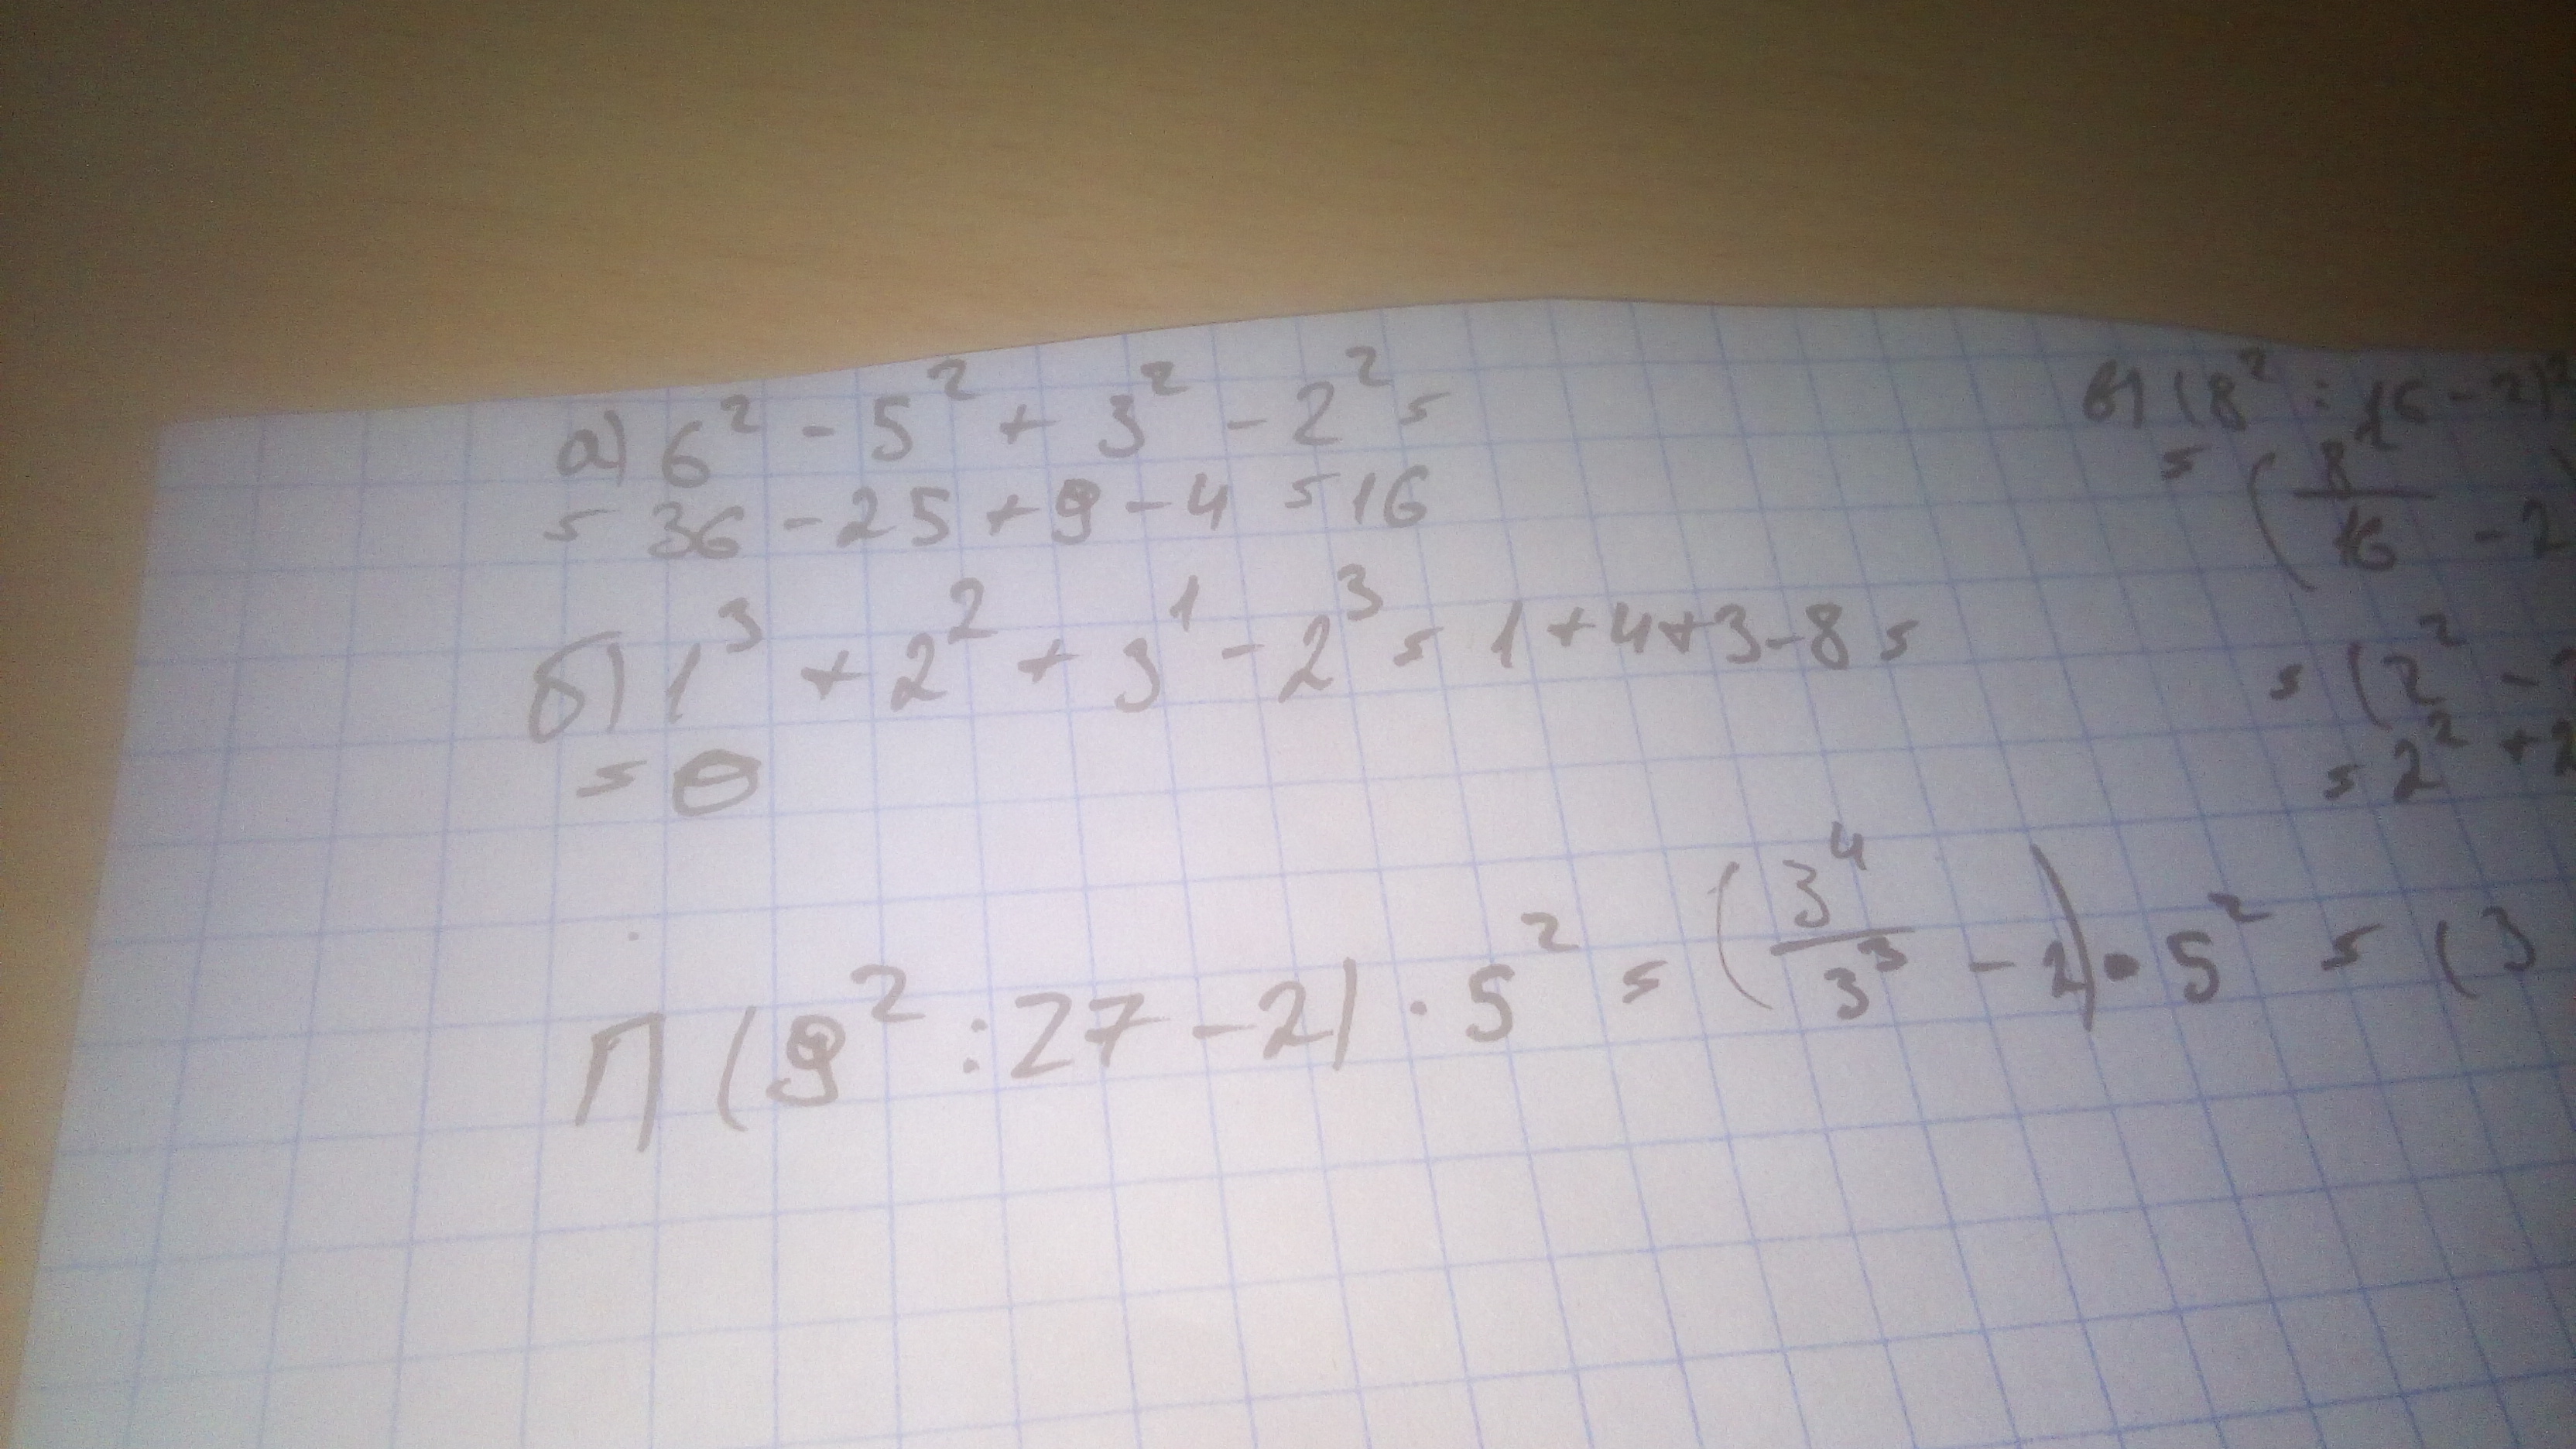 а) 6² - 5² + 3² - 2² =
= 36 - 25 + 9 - 4 = 16
б) 1³ + 2² + 3¹ - 2³ = 1 + 4 + 3 - 8 =
= 0
в) (8² : 16 - 2)²
= (8²/16 - 2
= (2² -
= 2² + 2
г) (9² : 27 - 2) · 5² = (3⁴/3³ - 2) · 5² = (3